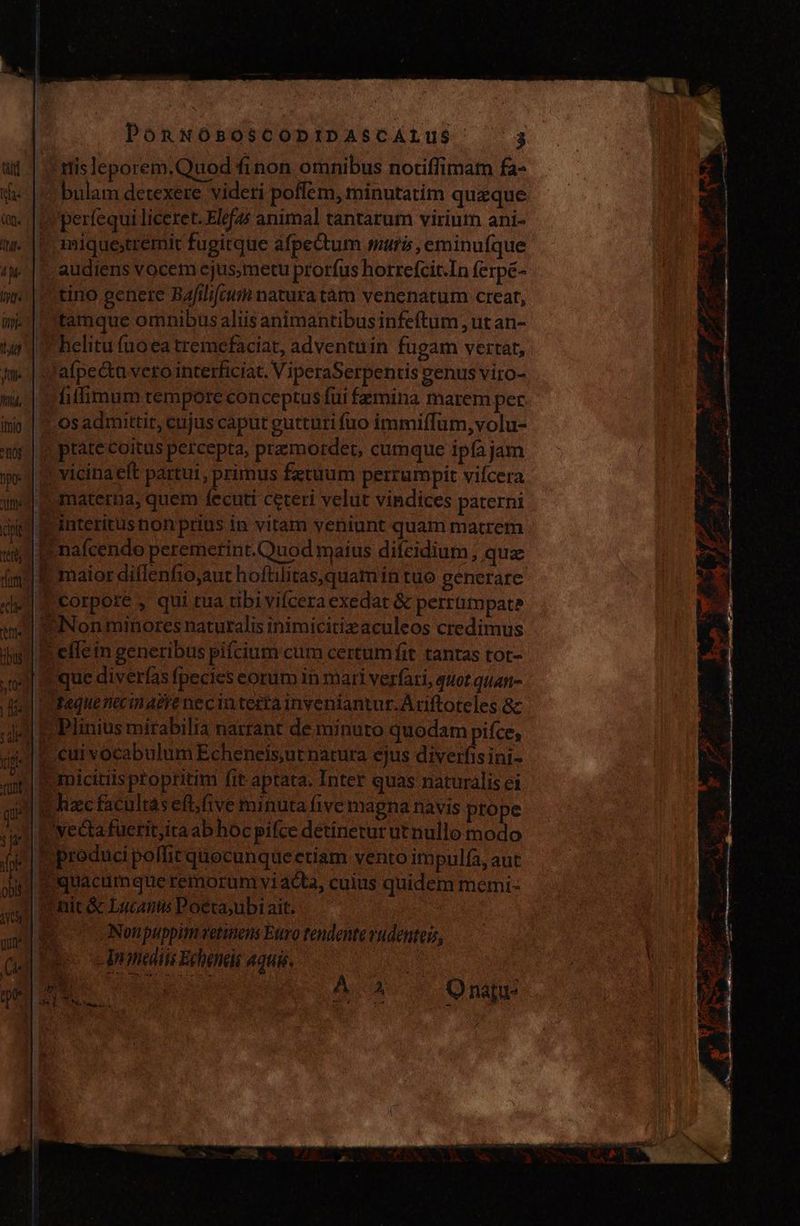 PORNOBOSCODIDASCALUS 3
tisleporem. Quod si non omnibus notissimam fa-
bulam detexere videri possem, minutatim quæque
persequi liceret. Elefas animal tantarum virium ani-
mique, tremit fugitque aspectum muris, eminusque
audiens vocem ejus, metu prorsus horrescit. In serpē-
tino genere Basiliscum natura tàm venenatum creat,
tamque omnibus aliis animantibus infestum, ut an-
helitu suo ea tremefaciat, adventu in fugam vertat,
aspectu vero interficiat. Vipera Serpentis genus viro-
sissimum tempore conceptus sui fæmina marem per
os admittit, cujus caput gutturi suo immissum, volu-
ptate coitus percepta, præmordet, cumque ipsa jam
vicina est partui, primus fætuum perrumpit viscera
materna, quem secuti ceteri velut vindices paterni
interitus non prius in vitam veniunt quam matrem
nascendo peremerint. Quod maius discidium, quæ
maior dissensio, aut hostilitas, quam in tuo generare
corpore, qui tua tibi viscera exedat & perrumpat?
Non minores naturalis inimicitiæ aculeos credimus
esse in generibus piscium cum certum sit tantas tot-
que diversas species eorum in mari versari, quot quan-
tæque nec in aëre nec in terra inveniantur. Aristoteles &
Plinius mirabilia narrant de minuto quodam pisce,
cui vocabulum Echeneis, ut natura ejus diversis ini-
micitiis propritim sit aptata. Inter quas naturalis ei
hæc facultas est, sive minuta sive magna navis prope
vecta fuerit, ita ab hoc pisce detinetur ut nullo modo
produci possit quocunque etiam vento impulsa, aut
quacumque remorum vi acta, cuius quidem memi-
nit & Lucanus Poëta, ubi ait.
Non puppim retinens Euro tendente rudenteis,
In mediis Echeneis aquis.
A 2 O natu-